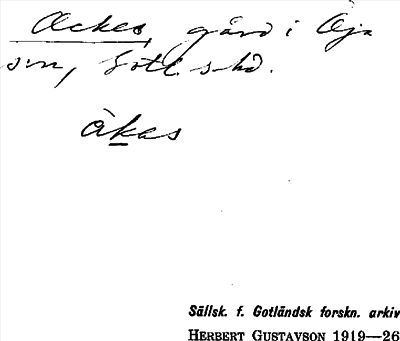 Ackes, gård i Öja
s:n, Gotl. s hd.
åkas
Sällsk. f. Gotländsk forskn. arkiv
HERBERT GUSTAVSON 1919—26